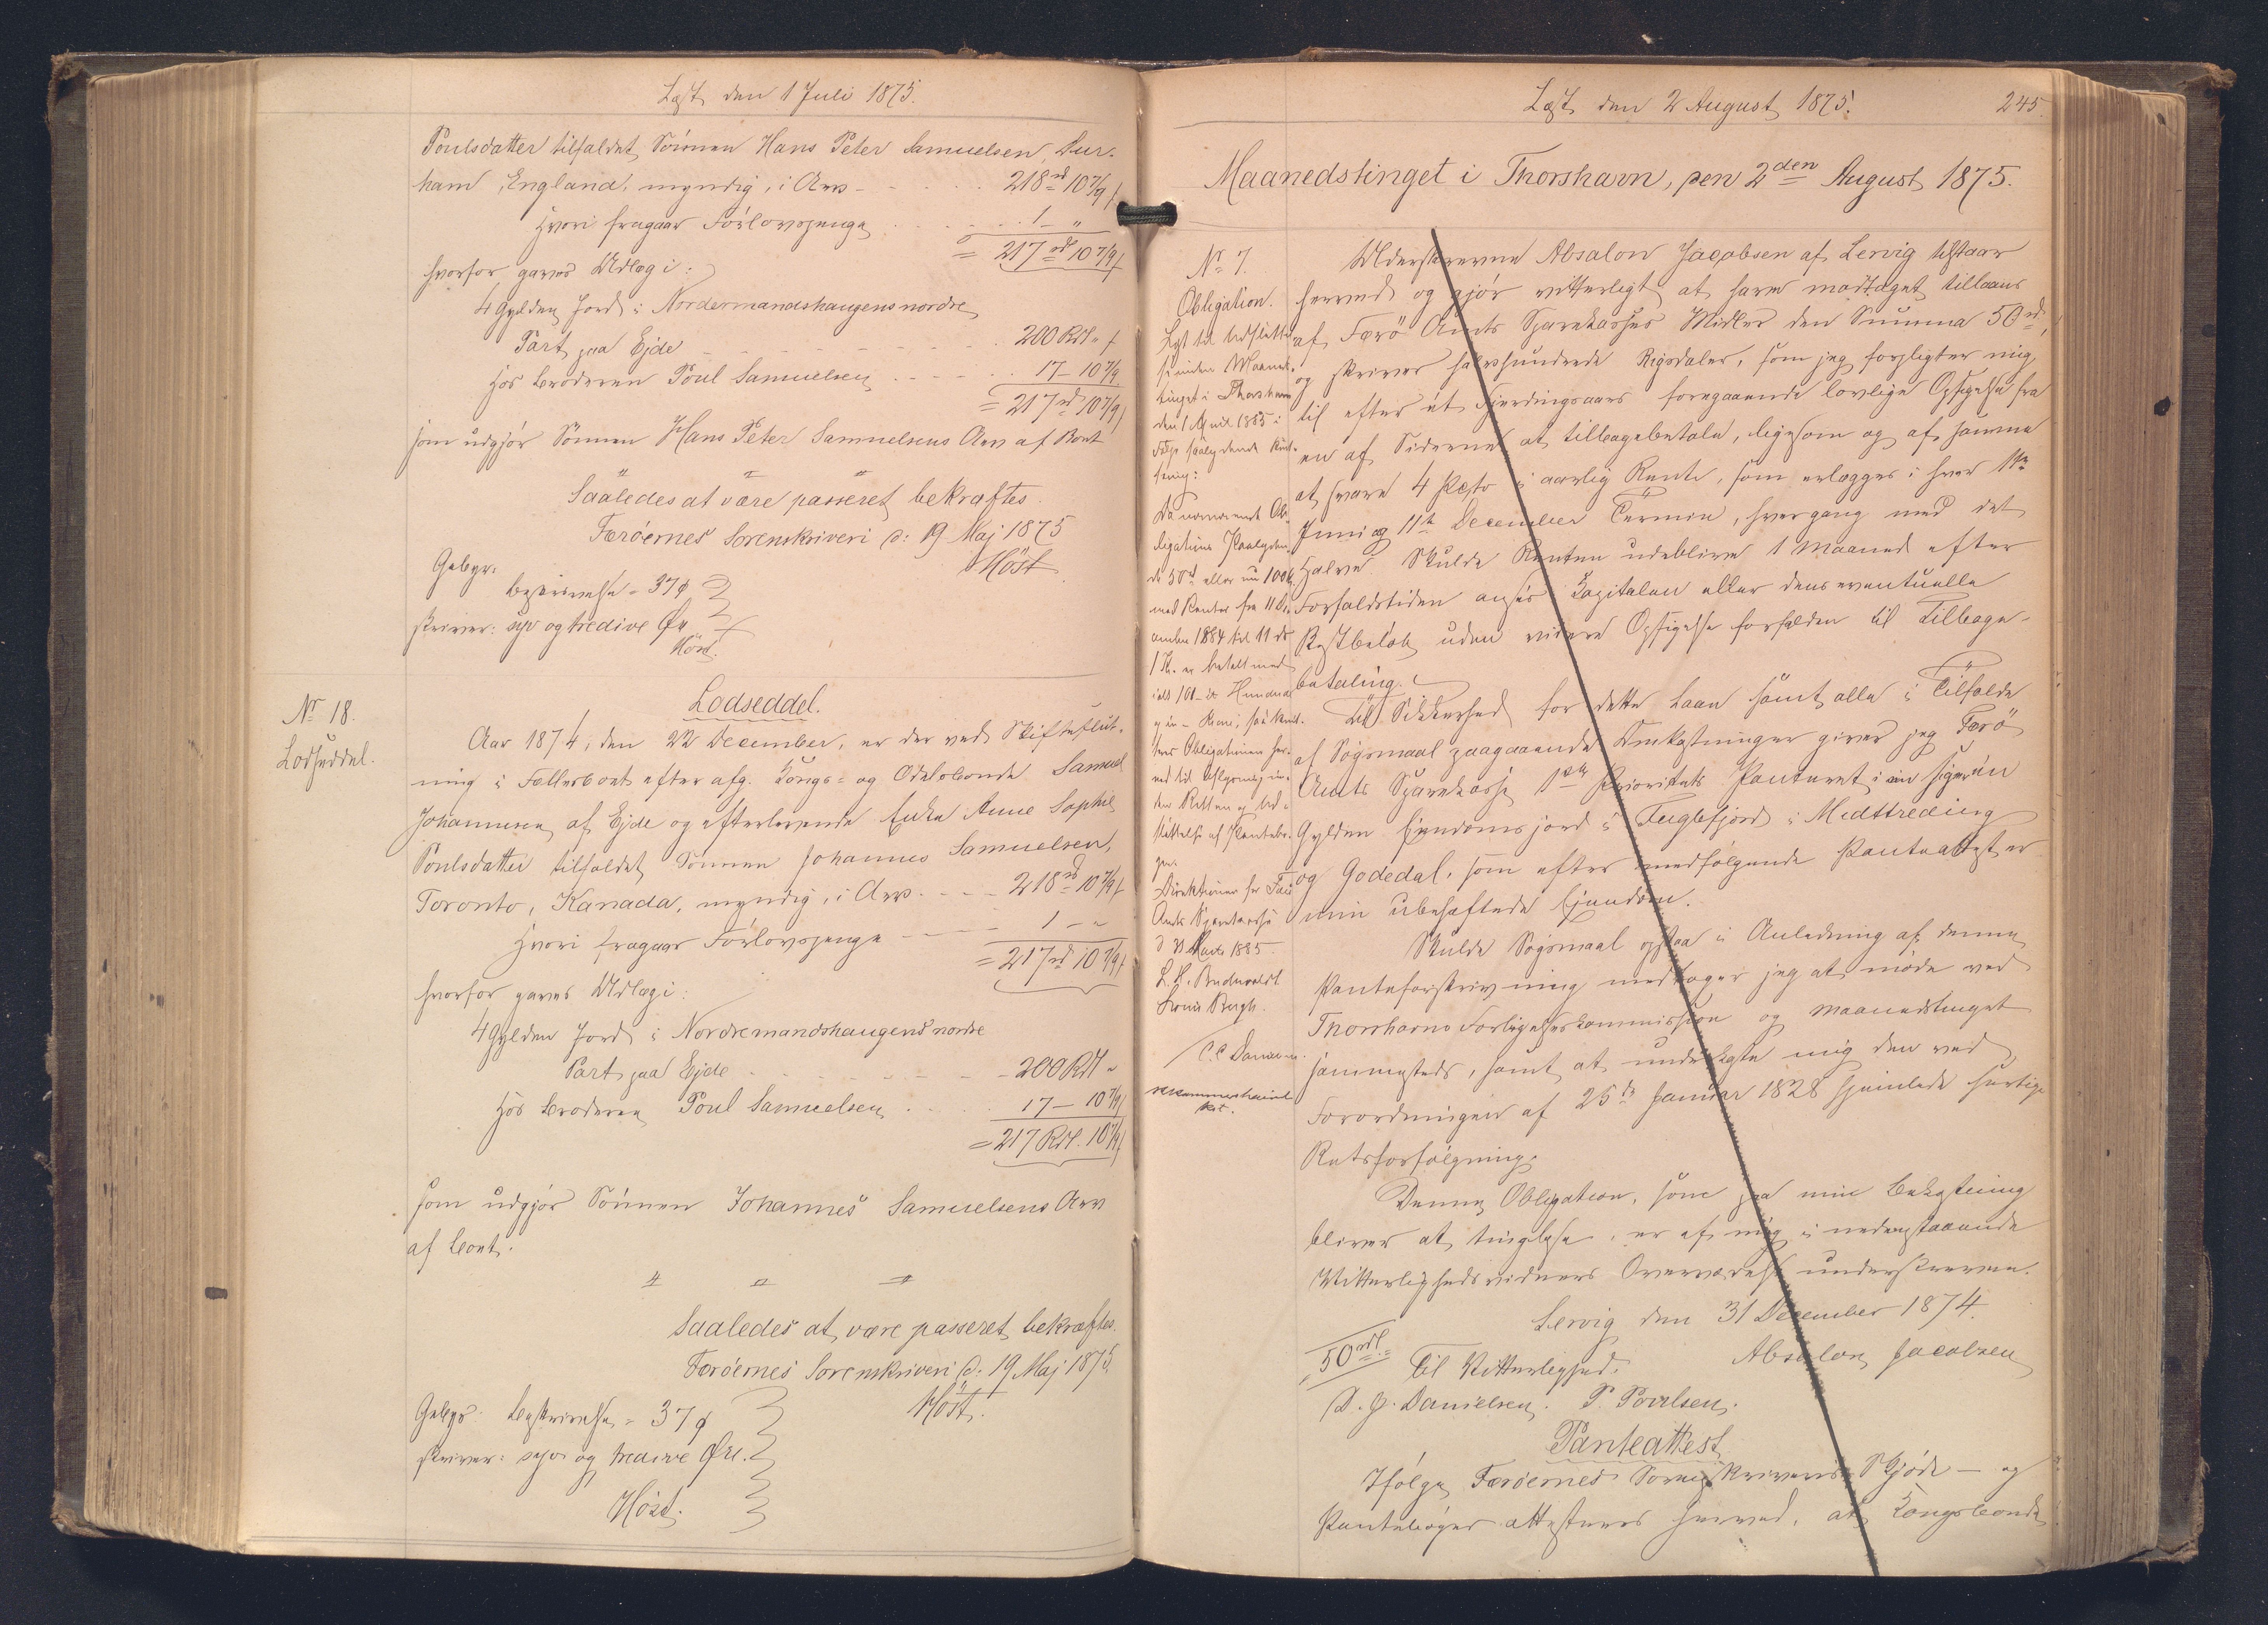 Læst den 1 Juli 1875.
Poulsdatter tilfaldet Sönnen Hans Peter Samuelsen, Dur-
ham, England, myndig, i Arv - 218 rd 10 7/9 f
hvori fragaar Forlovspenge 1 - "
= 217 rd 10 7/9 f
hvorfor gaves Udlæg i:
4 Gylden Jord i Nordermandshaugens nordre
Part paa Ejde 200 Rdl " f
hos Broderen Poul Samuelsen 17 - 10 7/9
= 217 rd 10 7/9 f
som udgjör Sönnen Hans Peter Samuelsens Arv af Boet
Saaledes at være passeret bekræftes.
Færöernes Sorenskriveri d: 19 Maj 1875
Höst
Gebyr:
Beskrivelse = 37 ø
skriver: syv og tredive Øre
Höst.
No 18.
Lodseddel.
Lodseddel.
Aar 1874, den 22 December, er der ved Skifteslut-
ning i Fællesboet efter afg. Kongs- og Odelsbonde Samuel
Johannesen af Ejde og efterlevende Enke Anne Sophie
Poulsdatter tilfaldet Sönnen Johannes Samuelsen,
Toronto, Kanada, myndig, i Arv - 218 rd 10 7/9 f
hvori fragaar Forlovspenge 1 - "
= 217 rd 10 7/9 f
hvorfor gaves Udlæg i:
4 Gylden Jord i Nordremandshaugens nordre
Part paa Ejde 200 Rdl "
hos Broderen Poul Samuelsen 17 - 10 7/9
= 217 Rdl. 10 7/9 f
som udgjör Sönnen Johannes Samuelsens Arv
af Boet.
Saaledes at være passeret bekræftes.
Færöernes Sorenskriveri d: 19 Maj 1875.
Höst.
Gebyr: Beskrivelse = 37 ø
skriver: syv og tredive Øre.
Höst.
Læst den 2 August 1875. 245
Maanedstinget i Thorshavn, den 2den August 1875.
No 7.
Obligation.
Læst til Udslettel-
se inden Maaneds-
tinget i Thorshavn
den 1 April 1885 i
Følge saalydende Kvit-
tering:
Da nærværende Ob-
ligations Paalyden-
de 50 rd eller nu 100 Kr
med Renter fra 11 De-
cember 1884 til 11 ds
er betalt med
ials 101 - et Hundrede
og en - Kroner, saa kvit-
teres Obligationen her-
ved til Aflysning in-
den Retten og Ud-
slettelse af Pantebo-
gen.
Direktionen for Færö
Amts Sparekasse
d Marts 1885
Louis Bergh.
C.C. Danielsen.
Underskrevne Absalon Jacobsen af Lervig tilstaar
herved og gjör vitterligt at have modtaget tillaans
af Færö Amts Sparekasses Midler den Summa 50 rd,
og skriver halvhundrede Rigsdaler, som jeg forpligter mig
til efter et Fjerdingaars foregaaende lovlige Opsigelse fra
en af Siderne at tilbagebetale, ligesom og af samme
at svare 4 Pcto i aarlig Rente, som erlægges i hver 11te
Juni og 11te December Termin, hvergang med det
Halve. Skulde Renten udeblive 1 Maaned efter
Forfaldstiden ansees Kapitalen eller dens eventuelle
Restbelöb uden videre Opsigelse forfalden til Tilbage-
betaling.
Til Sikkerhed for dette Laan samt alle i Tilfælde
af Sögsmaal paagaaende Omkostninger giver jeg Færö
Amts Sparekasse 1ste Prioritets Panteret i en siger een
Gylden Ejendomsjord i Fuglefjord i Midttreding
og Godedal, som efter medfölgende Panteattest er
min ubehæftede Ejendom.
Skulde Sögsmaal opstaa i Anledning af denne
Panteforskrivning vedtager jeg at möde ved
Thorshavns Forligelseskommission og Maanedstinget
sammesteds, samt at underkaste mig den ved
Forordningen af 25de Januar 1828 hjemlede hurtige
Retsforfölgning.
Denne Obligation, som paa min Bekostning
bliver at tinglyse, er af mig i nedenstaaende
Vitterlighedsvidners Overværelse underskreven.
Lervig den 31 December 1874.
50 rdl. Absalon Jacobsen
Til Vitterlighed.
D. J. Danielsen. P. Poulsen.
Panteattest
Ifölge Færöernes Sorenskriveris Skjöde- og
Panteböger attesteres herved, at Kongsbonde